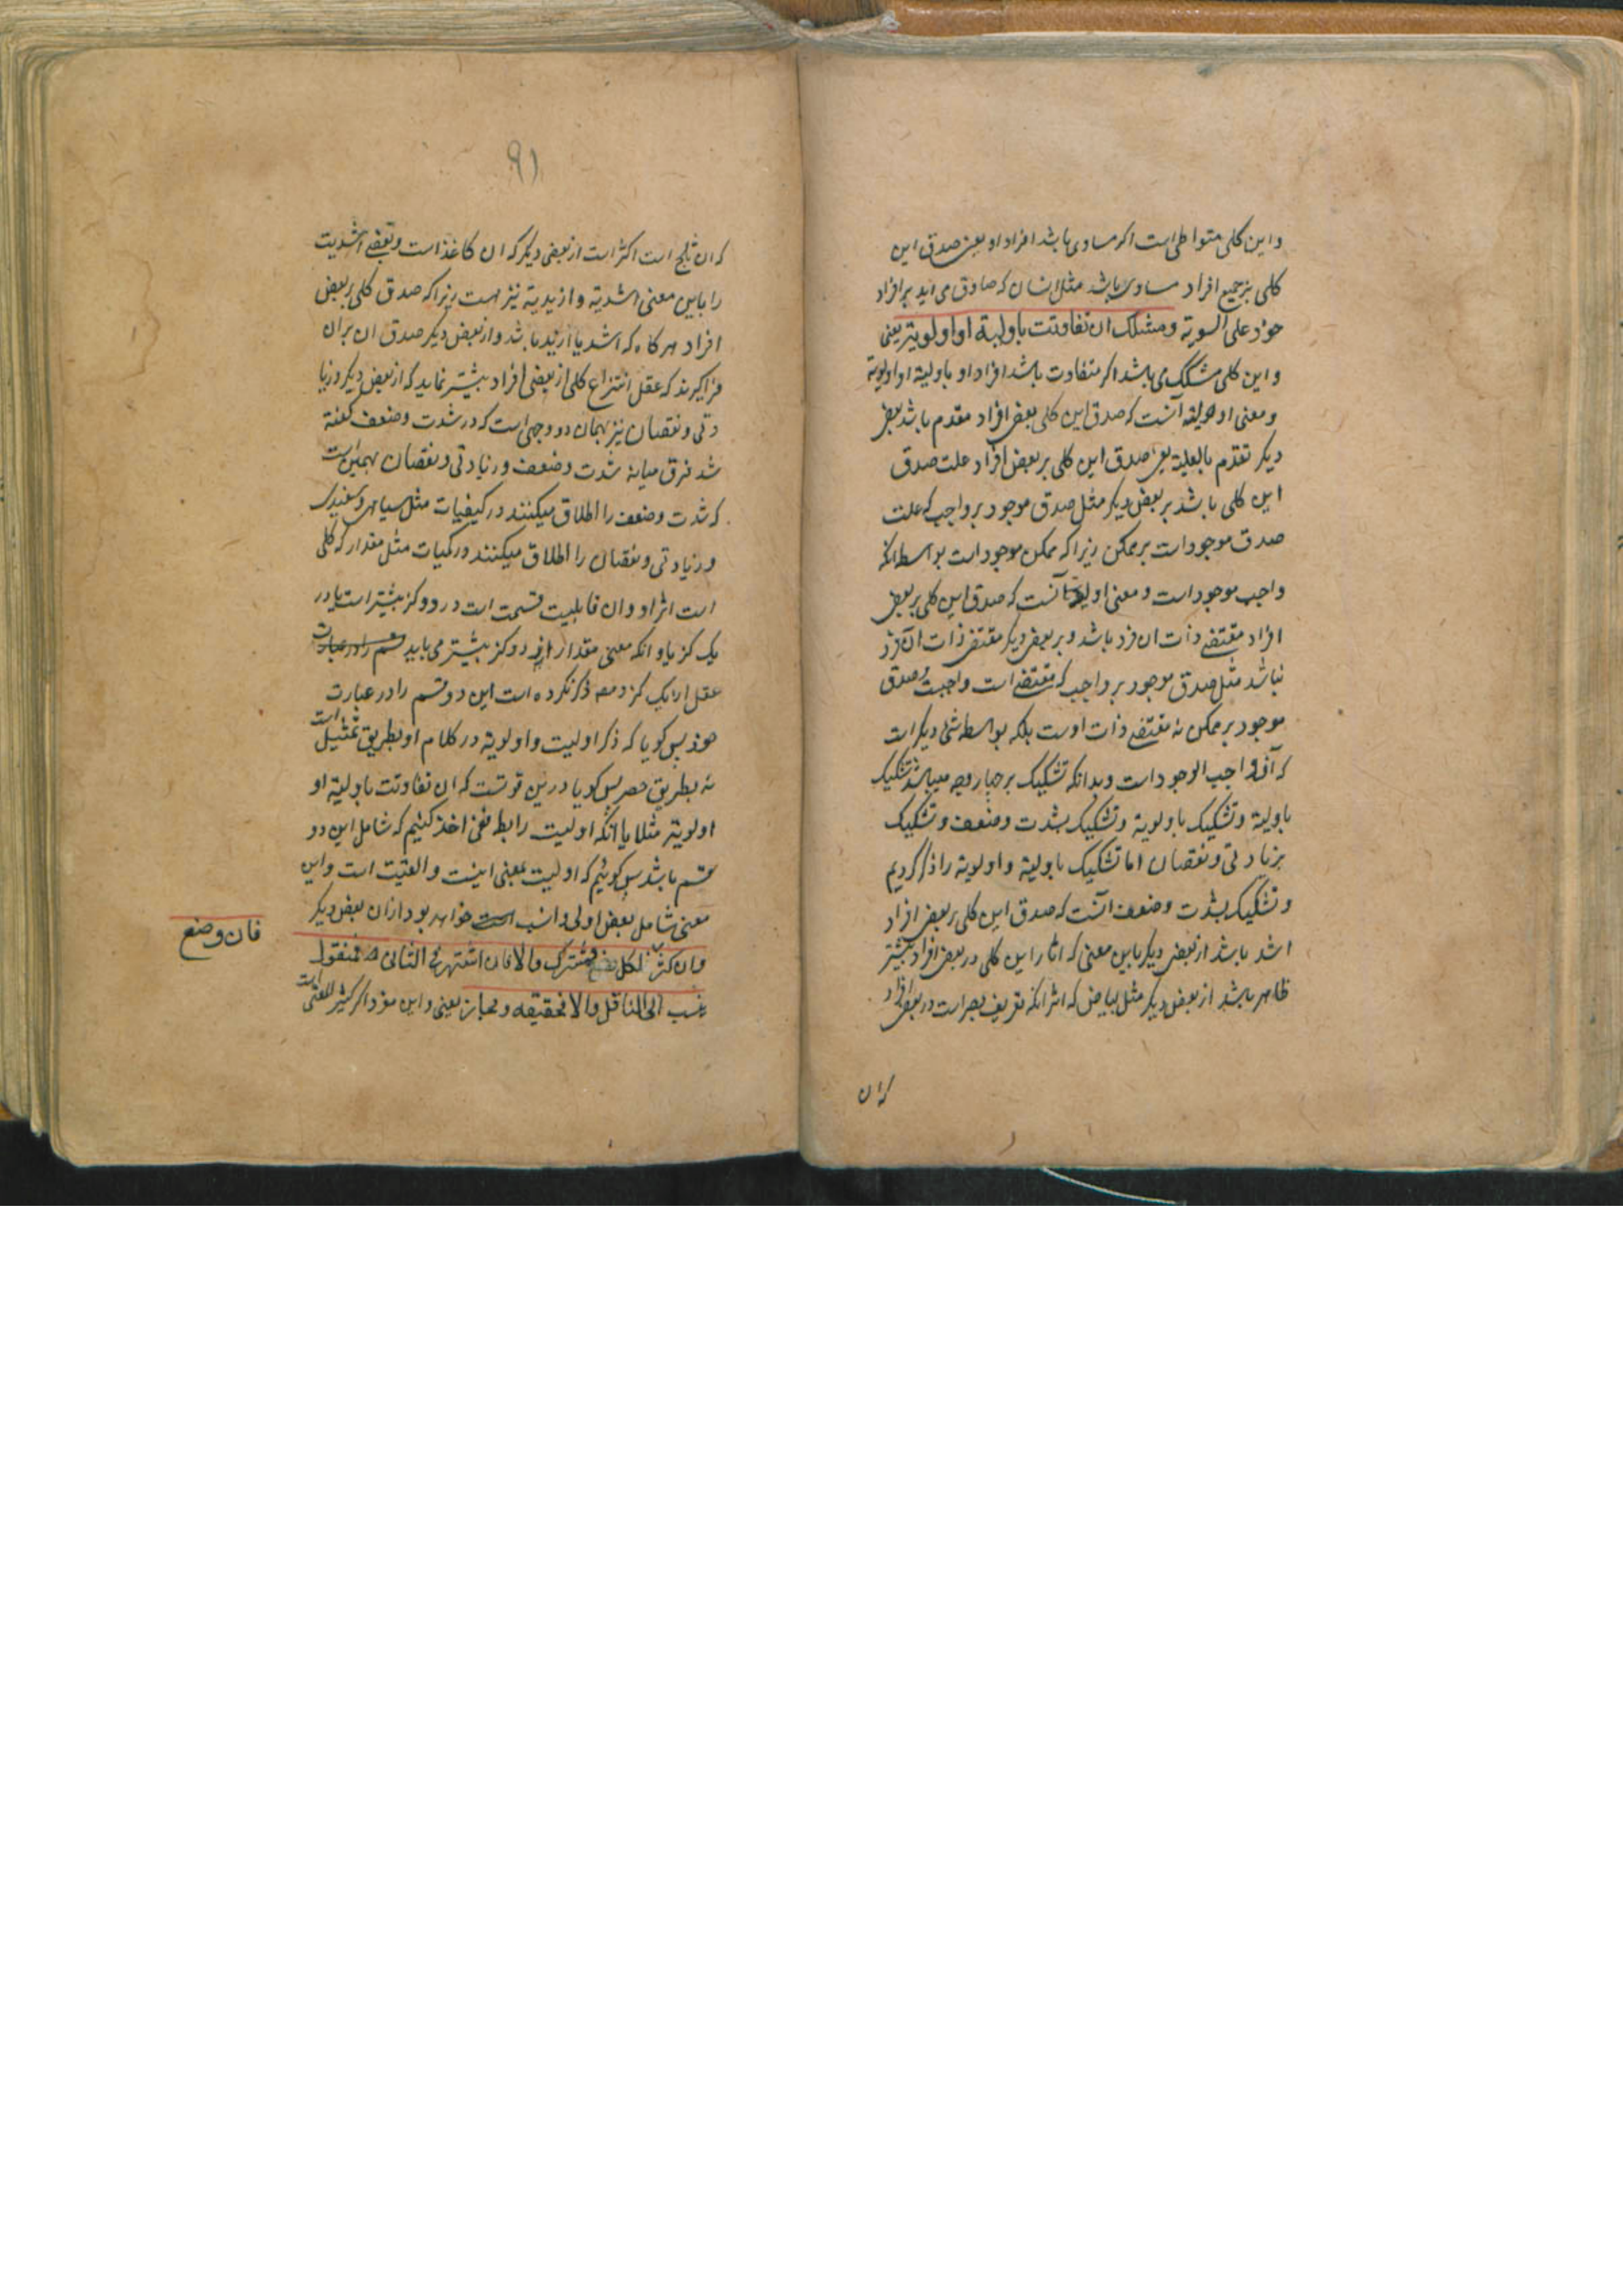 و این کلی متواطی است اکر مساوی باشد افراد او یعنی صدق این
کلی بر جمیع افراد مساوی باشد مثل انسان که صادق می اید بر افراد
خود علی السویه ومشکک ان تفاوتت باولیة او اولویته یعنی
و این کلی مشکک می باشد اکر متفاوت باشد افراد او باولیة او اولویة
و معنی اولیة آنست که صدق این کلی بعض افراد مقدم باشد بعض
دیکر تقدم بالعلیة یعنی صدق این کلی بر بعض افراد علت صدق
این کلی باشد بر بعض دیکر مثل صدق موجود بر واجب که علت
صدق موجود است بر ممکن زیرا که ممکن موجود است بواسطه آنکه
واجب موجود است و معنی اولویة آنست که صدق این کلی بر بعض
افراد مقتضی ذات ان فرد باشد و بر بعض دیکر مقتضی ذات ان فرد
نباشد مثل صدق موجود بر واجب که مقتضی است واجبست و صدق
موجود بر ممکن نه مقتضی ذات اوست بلکه بواسطه شی دیکر است
که آن واجب الوجود است و بدانکه تشکیک بر چهار وجه میباشد تشکیک
باولیة و تشکیک باولویة و تشکیک بشدت و ضعف و تشکیک
بزیادتی و نقصان اما تشکیک باولیة و اولویة را ذکر کردیم
و تشکیک بشدت و ضعف آنست که صدق این کلی بر بعض افراد
اشد باشد از بعض دیکر باین معنی که اثار این کلی در بعض افراد بیشتر
ظاهر باشد از بعض دیکر مثل بیاض که اثر انکه تفریق بصر است در بعض افراد
که ان
۹۱
که ان ثلج است اکثر است از بعض دیکر که ان کاغذ است و بعضی اشدیت
را باین معنی اشدیة و ازیدیة نیز هست زیرا که صدق کلی بر بعض
افراد هر کاه که اشد یا ازید باشد و از بعض دیکر صدق ان بران
فراکیرند که عقل انتزاع کلی از بعضی افراد بیشتر نماید که از بعض دیکر و زیا
دتی و نقصان نیز بهمان دو وجهی است که در شدت و ضعف کفته
شد فرق میانه شدت و ضعف و زیادتی و نقصان همین است
که شدت و ضعف را اطلاق میکنند در کیفیات مثل سیاهی و سفیدی
و زیادتی و نقصان را اطلاق میکنند در کمیات مثل مقدار که کلی
است اثر او و ان قابلیت قسمت است در دو کز بیشتر است یا در
یک کز یا و انکه معنی مقدار از دو کز بیشتر می یابد قسم را در عبارت
عقل از یک کز و مصه ذکر نکرده است این دو قسم را در عبارت
خود پس کویا که ذکر اولیت و اولویة در کلام او بطریق تمثیل است
نه بطریق حصر پس کویا درین قوتست که ان تفاوتت باولیة او
اولویته مثلا یا انکه اولیت را بطریقی اخذ کنیم که شامل این دو
قسم باشد پس کوئیم که اولیت بمعنی انسبیت و الیقیت است و این
معنی شامل بعض اولی و انسب است خواهد بود از ان بعض دیکر
وان کثر فان وضع لکل فمشترک والا فان اشتهر فی الثانی فمنقول
ینسب الی الناقل والا فحقیقه و مجاز یعنی و این مفرد اکر کثیر المعنی است
فان وضع